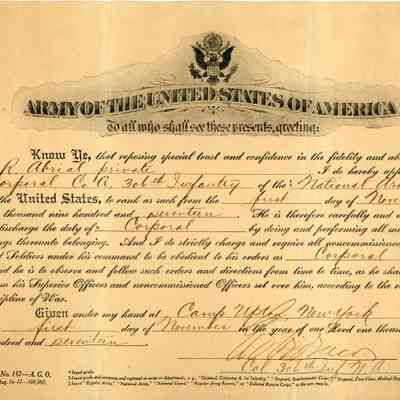 ARMY OF THE UNITED STATES OF AMERICA
To all who shall see these presents, greeting:
Know Ye, that reposing special trust and confidence in the fidelity and ab
R. Abrial private I do hereby app
Corporal Co G. 306th Infantry of the National Ar
the United States, to rank as such from the first day of Nove
thousand nine hundred and seventeen. He is therefore carefully and
discharge the duty of Corporal by doing and performing all ma
ngs thereunto belonging. And I do strictly charge and require all noncommissioned
d Soldiers under his command to be obedient to his orders as Corporal
nd he is to observe and follow such orders and directions from time to time, as he sha
m his Superior Officers and Noncommissioned Officers set over him, according to the
cipline of War.
Given under my hand at Camp Upton, New York
first day of November in the year of our Lord one thousa
ndred and seventeen
Col. 306th Inf. N.A.
No. 151—A. G. O.